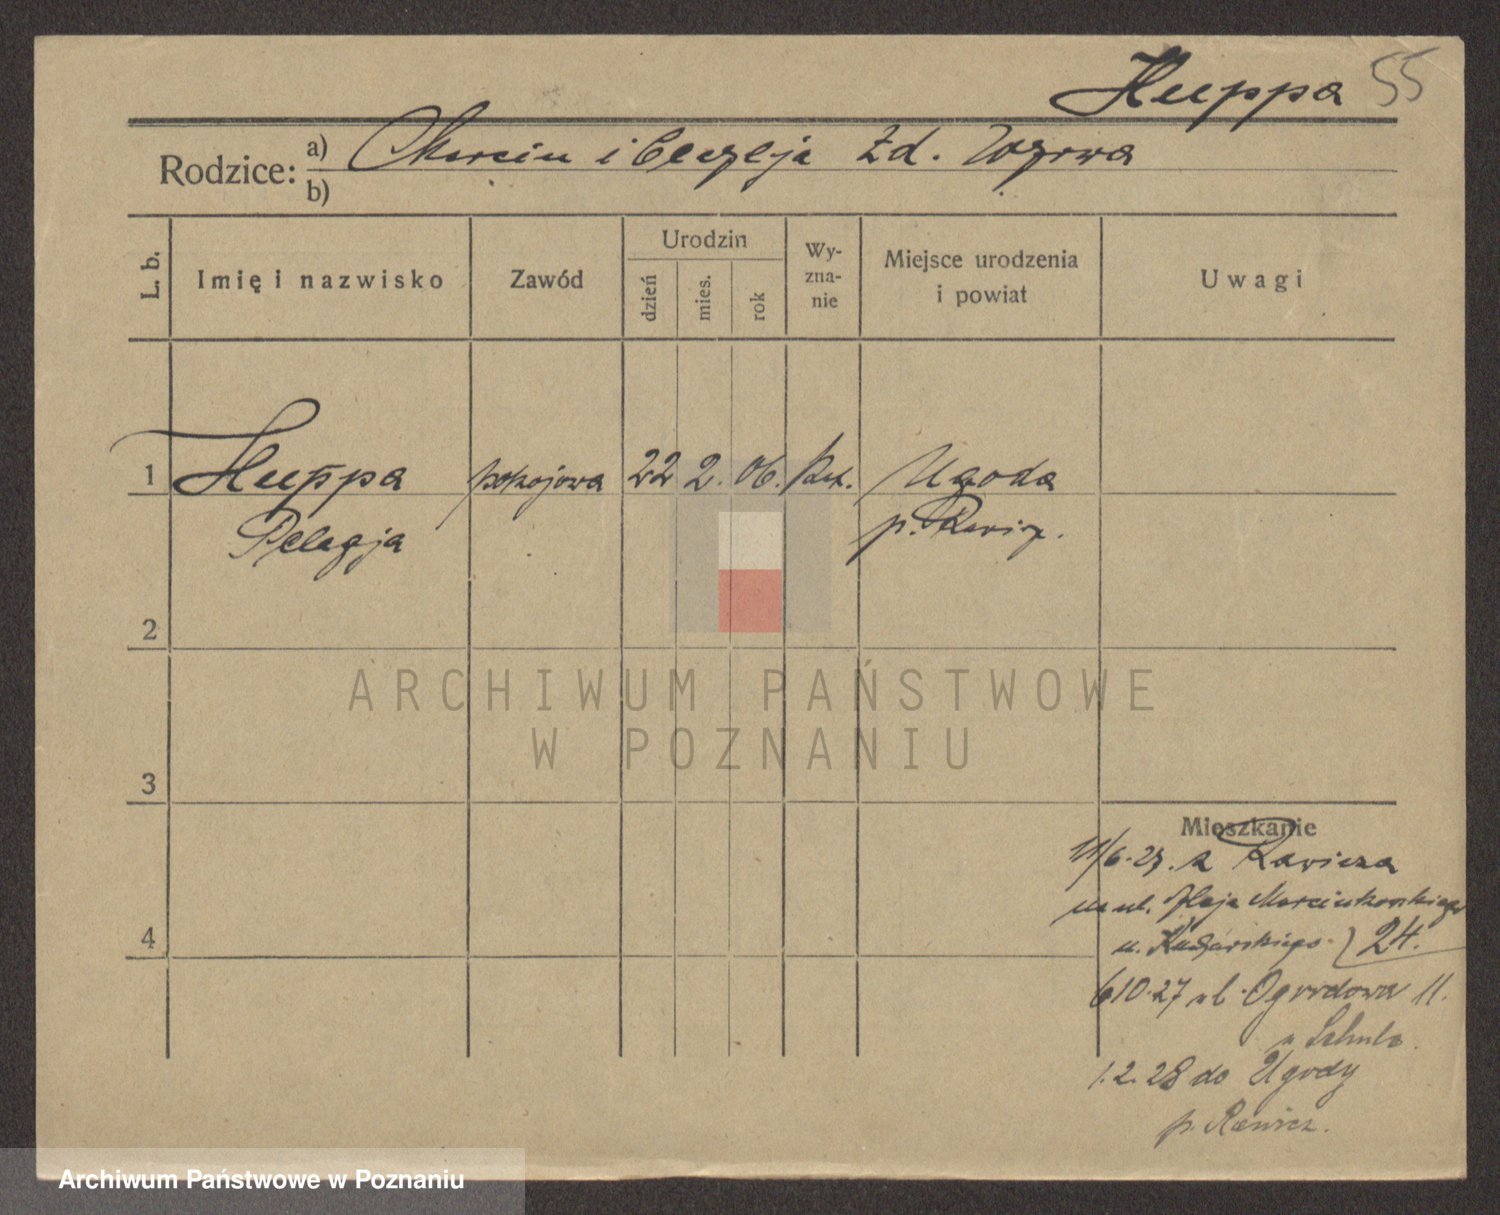 Huppa 55
Rodzice: a) Marcin i Cecylja zd. Wyrwa
b)
L. b.
Imię i nazwisko
Zawód
Urodzin
dzień
mies.
rok
Wy-
zna-
nie
Miejsce urodzenia
i powiat
Uwagi
1 Huppa pokojowa 22 2. 06. kat. Ugoda
Pelagja p. Rawicz.
2
ARCHIWUM PAŃSTWOWE
W POZNANIU
3
Mieszkanie
11/6.27. z Rawicza
na ul. Aleja Marcinkowskiego
24.
4
6 10.27 ul. Ogrodowa 11.
1.2.28 do Ugody
p. Rawicz.
Archiwum Państwowe w Poznaniu